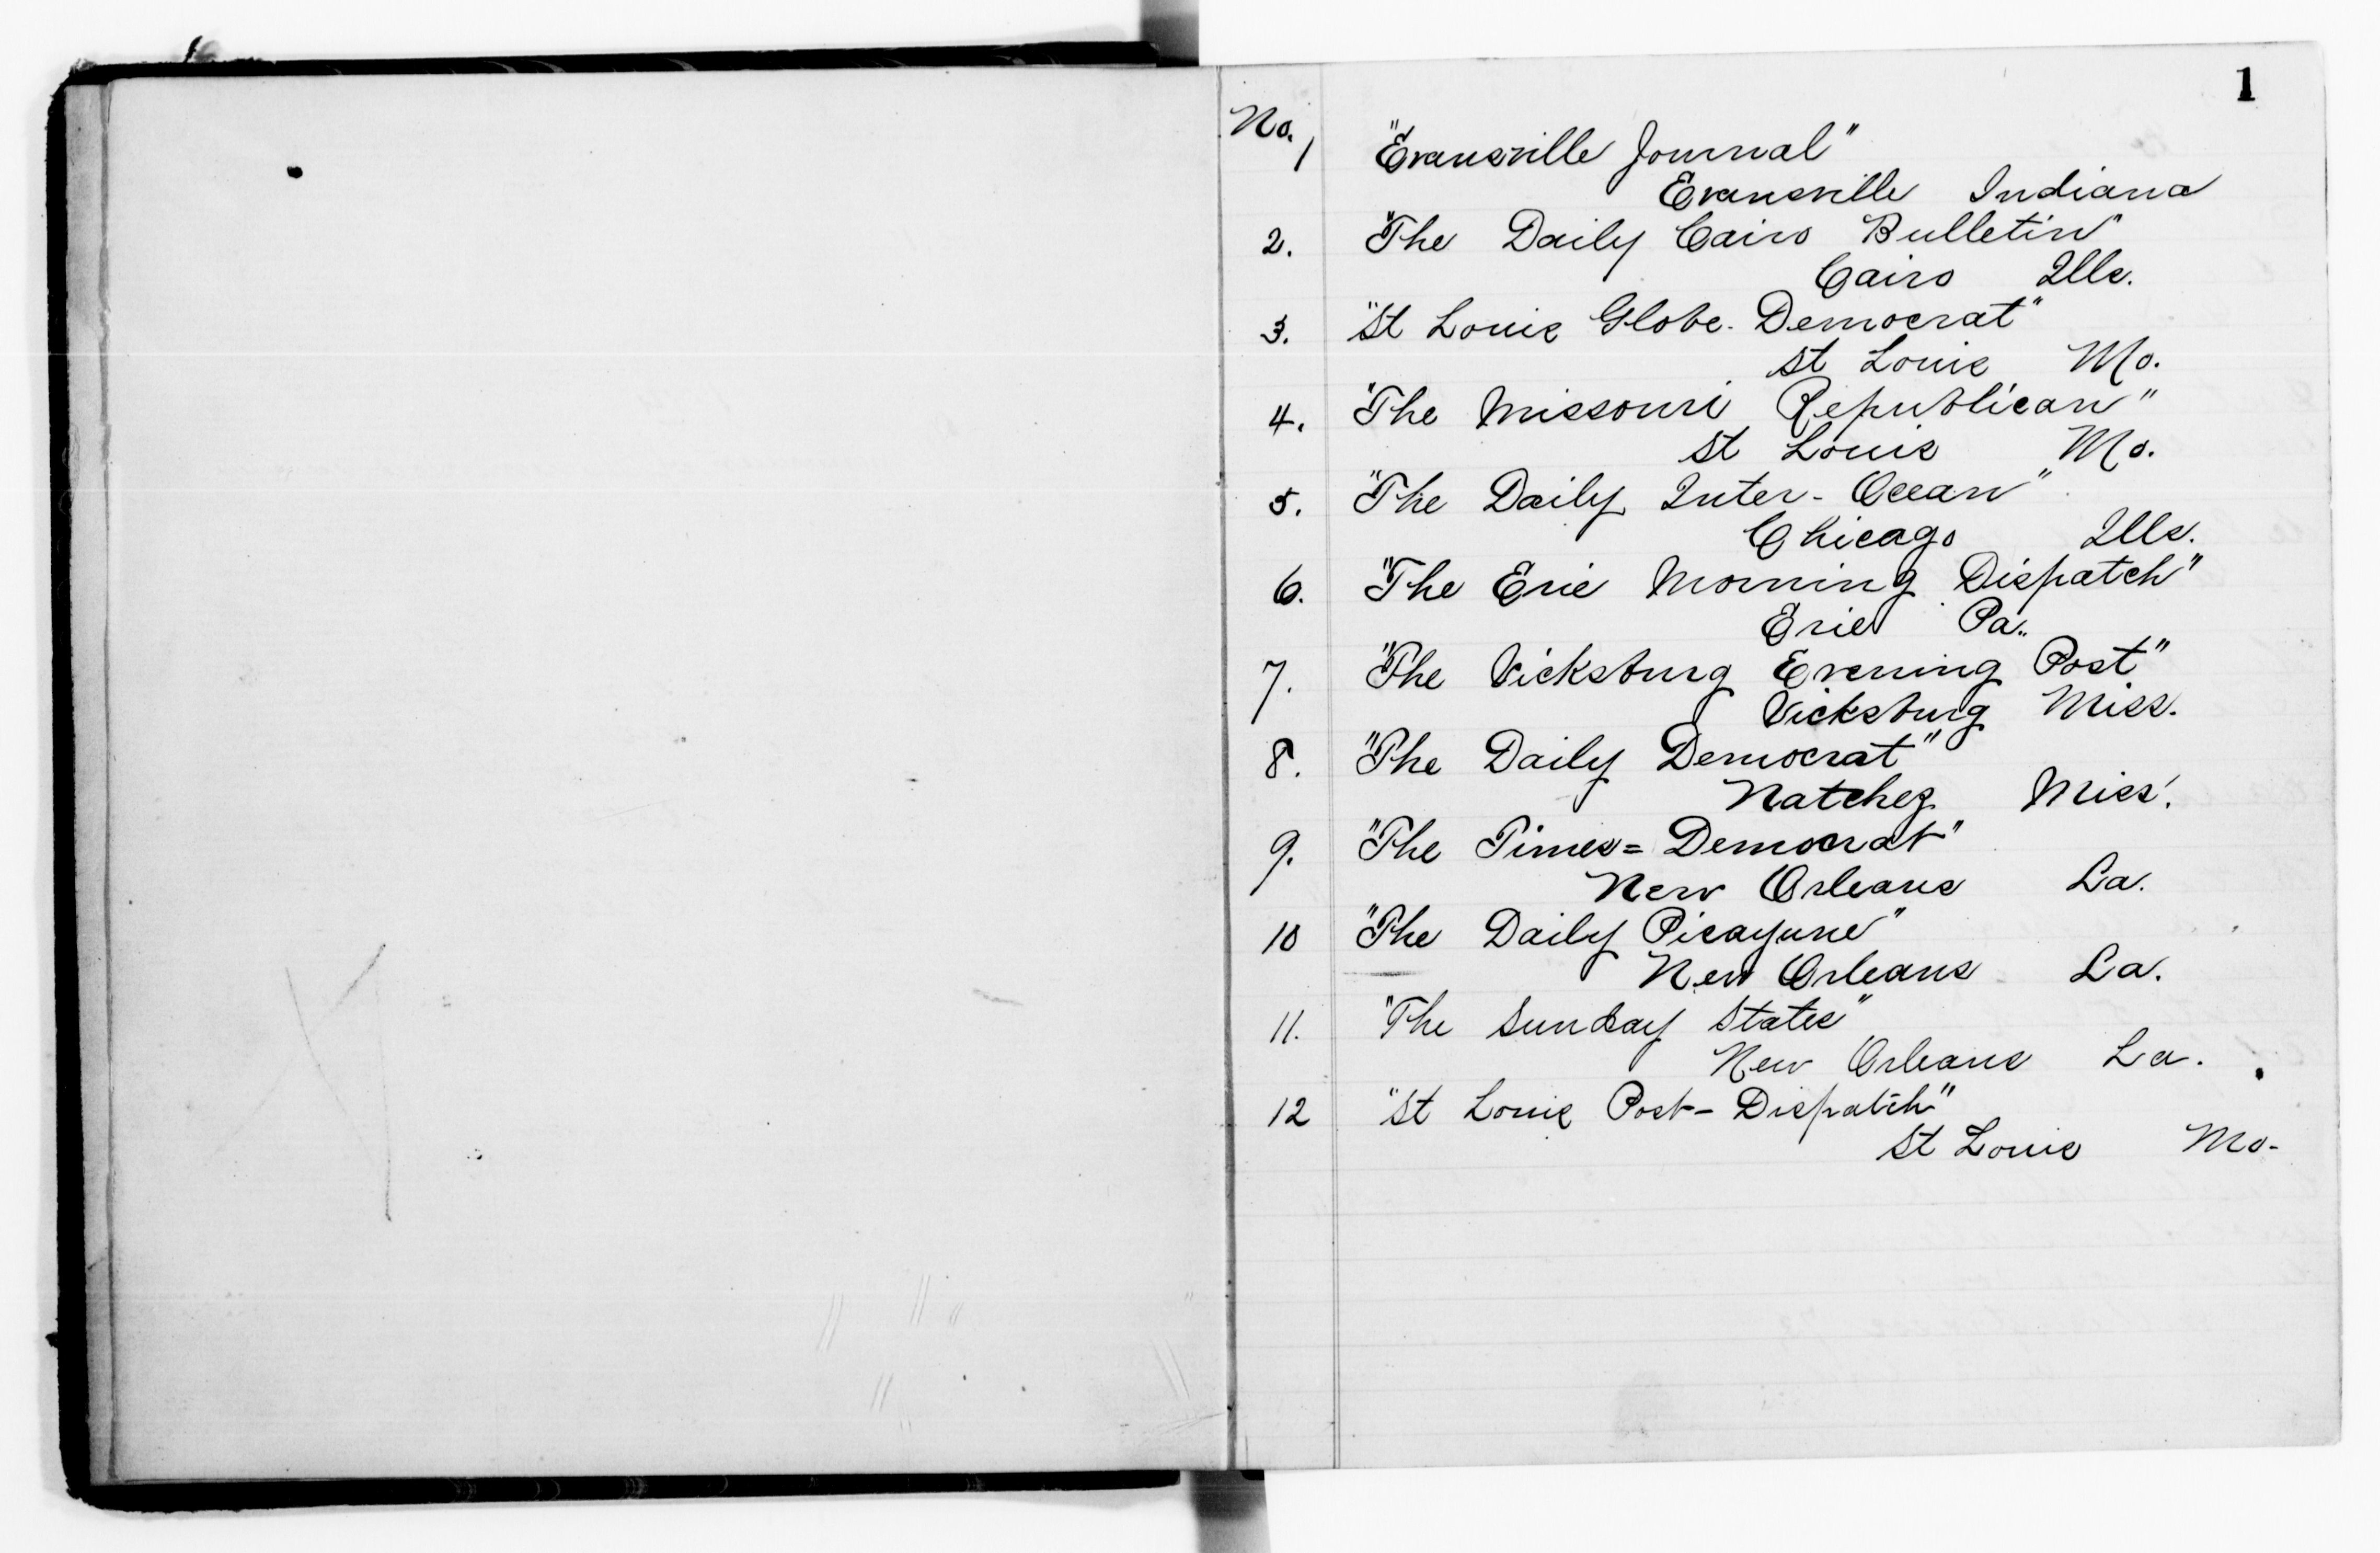 1
No.
1 "Evansville Journal"
Evansville Indiana
2. "The Daily Cairo Bulletin"
Cairo Ills.
3. "St Louis Globe-Democrat"
St Louis Mo.
4. "The Missouri Republican"
St Louis Mo.
5. "The Daily Inter-Ocean"
Chicago Ills.
6. "The Erie Morning Dispatch"
Erie Pa.
7. "The Vicksburg Evening Post"
Vicksburg Miss.
8. "The Daily Democrat"
Natchez Miss.
9. "The Times=Democrat"
New Orleans La.
10 "The Daily Picayune"
New Orleans La.
11. "The Sunday States"
New Orleans La.
12 "St Louis Post-Dispatch"
St Louis Mo-